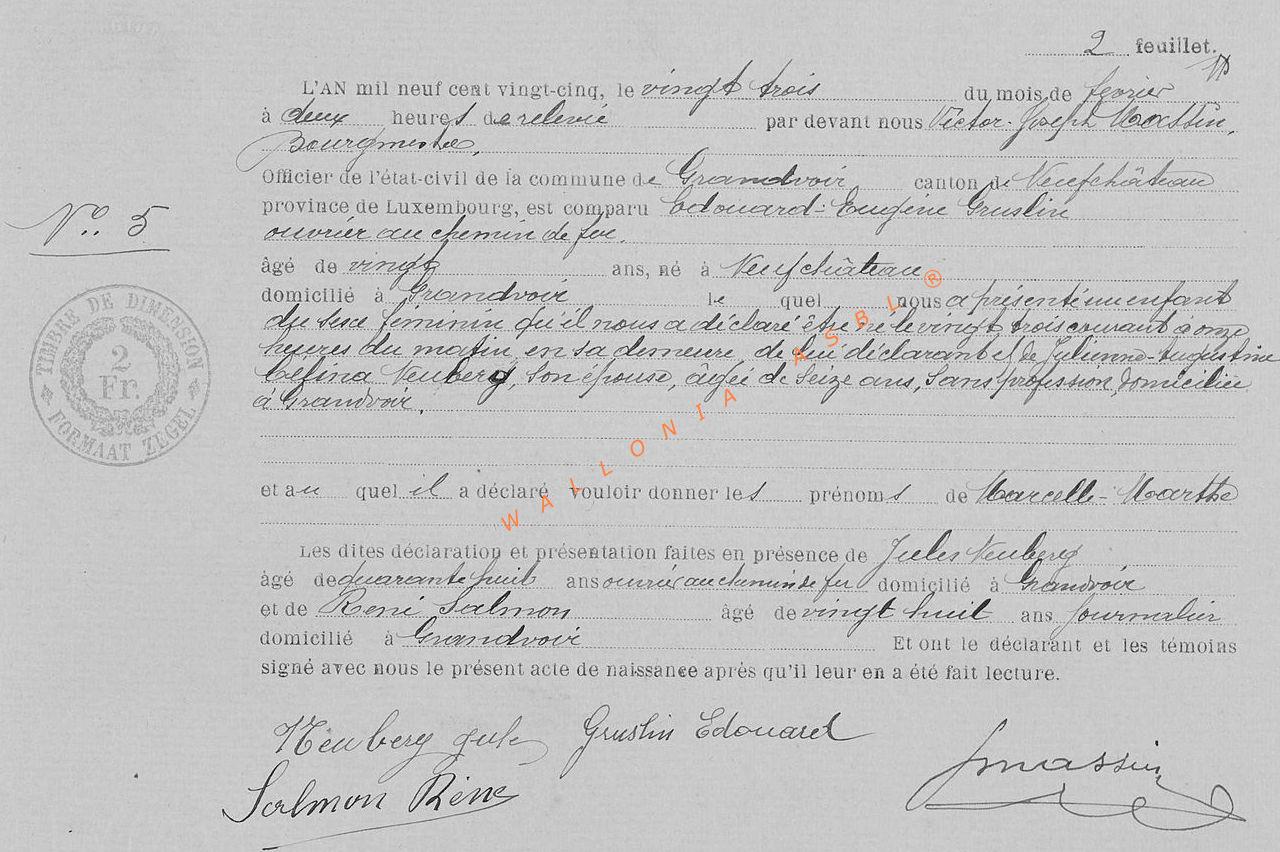 2 feuillet.
L'AN mil neuf cent vingt-cinq, le vingt trois du mois de février
à deux heures de relevée par devant nous Victor-Joseph Massin,
Bourgmestre,
Officier de l'état-civil de la commune de Grandvoir canton de Neufchâteau
province de Luxembourg, est comparu Edouard-Eugène Gruslin
N° 5
ouvrier au chemin de fer.
âgé de vingt ans, né à Neufchâteau
domicilié à Grandvoir le quel nous a présenté un enfant
du sexe féminin qu'il nous a déclaré être né le vingt trois courant à onze
heures du matin, en sa demeure, de lui déclarant et de Julienne-Augustine
Celfina Neuberg, son épouse, âgée de seize ans, sans profession, domiciliée
à Grandvoir.
TIMBRE DE DIMENSION
2
Fr.
FORMAAT ZEGEL
WALLONIA ASBL ®
et au quel il a déclaré vouloir donner les prénoms de Marcelle-Marthe
Les dites déclaration et présentation faites en présence de Jules Neuberg
âgé de quarante huit ans ouvrier au chemin de fer domicilié à Grandvoir
et de René Salmon âgé de vingt huit ans journalier
domicilié à Grandvoir Et ont le déclarant et les témoins
signé avec nous le présent acte de naissance après qu'il leur en a été fait lecture.
Neuberg Jules Gruslin Edouard
Jmassin
Salmon Réné